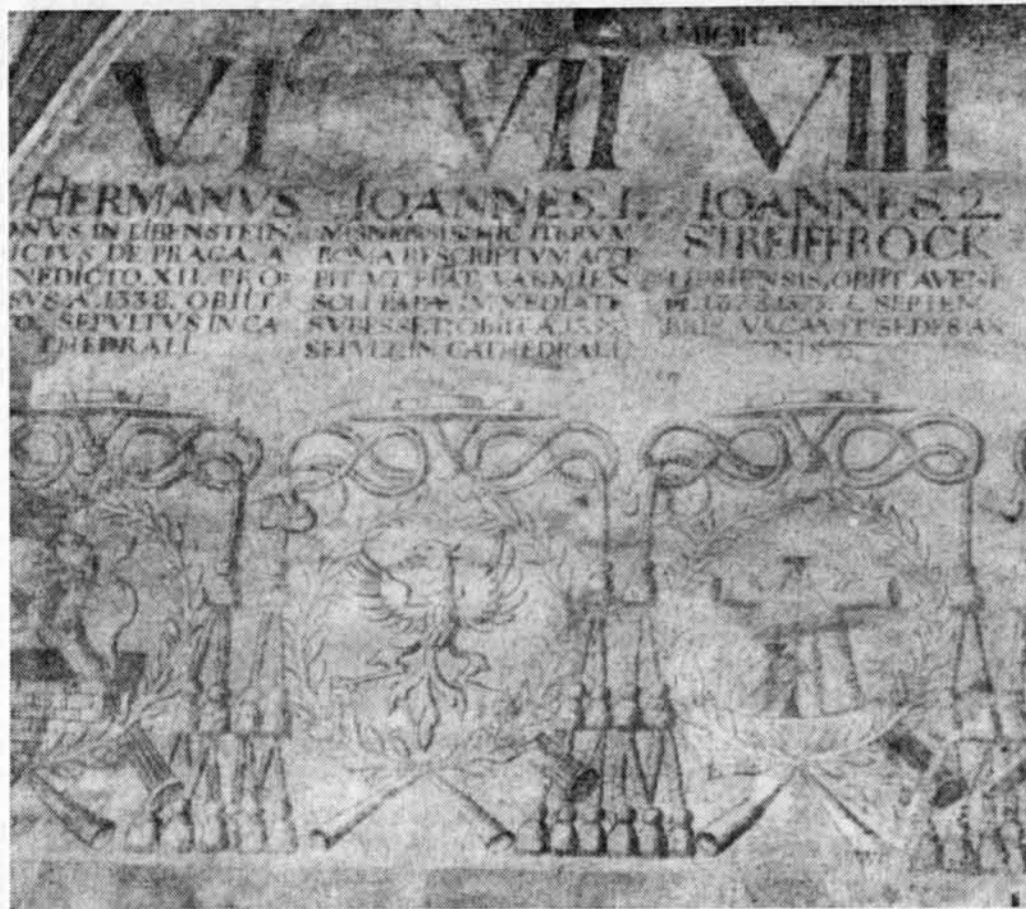 VI
HERMANVS
ONVS IN LIBENSTEIN
ICTVS DE PRAGA. A
NEDICTO. XII. PRO-
SVS. A. 1338. OBIIT
TO. SEPVLTVS IN CA
THEDRALI.
VII
IOANNES. 1.
HIC ITERVM
ROMA RESCRIPTVM ACCE
PIT VT FIAT VARMIEN
SOLI PAPÆ IMMEDIATE
SVBESSET. OBIIT A.
SEPVLT. IN CATHEDRALI
VIII
IOANNES. 2.
STREIFFROCK
OBIIT AVENI
SEPTEM
BRIS VACAVIT SEDES AN
NIS